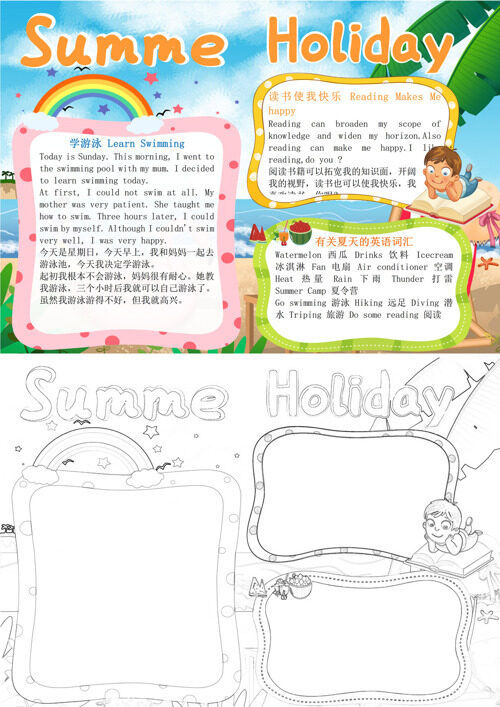 Summe Holiday
学游泳 Learn Swimming
Today is Sunday. This morning, I went to
the swimming pool with my mum. I decided
to learn swimming today.
At first, I could not swim at all. My
mother was very patient. She taught me
how to swim. Three hours later, I could
swim by myself. Although I couldn't swim
very well, I was very happy.
今天是星期日，今天早上，我和妈妈一起去
游泳池，今天我决定学游泳。
起初我根本不会游泳，妈妈很有耐心。她教
我游泳，三个小时后我就可以自己游泳了。
虽然我游泳游得不好，但我就高兴。
读书使我快乐 Reading Makes Me
happy
Reading can broaden my scope of
knowledge and widen my horizon.Also
reading can make me happy.I
reading,do you ?
阅读书籍可以拓宽我的知识面，开阔
我的视野，读书也可以使我快乐，我
有关夏天的英语词汇
Watermelon 西瓜 Drinks 饮料 Icecream
冰淇淋 Fan 电扇 Air conditioner 空调
Heat 热量 Rain 下雨 Thunder 打雷
Summer Camp 夏令营
Go swimming 游泳 Hiking 远足 Diving 潜
水 Triping 旅游 Do some reading 阅读
Summe Holiday